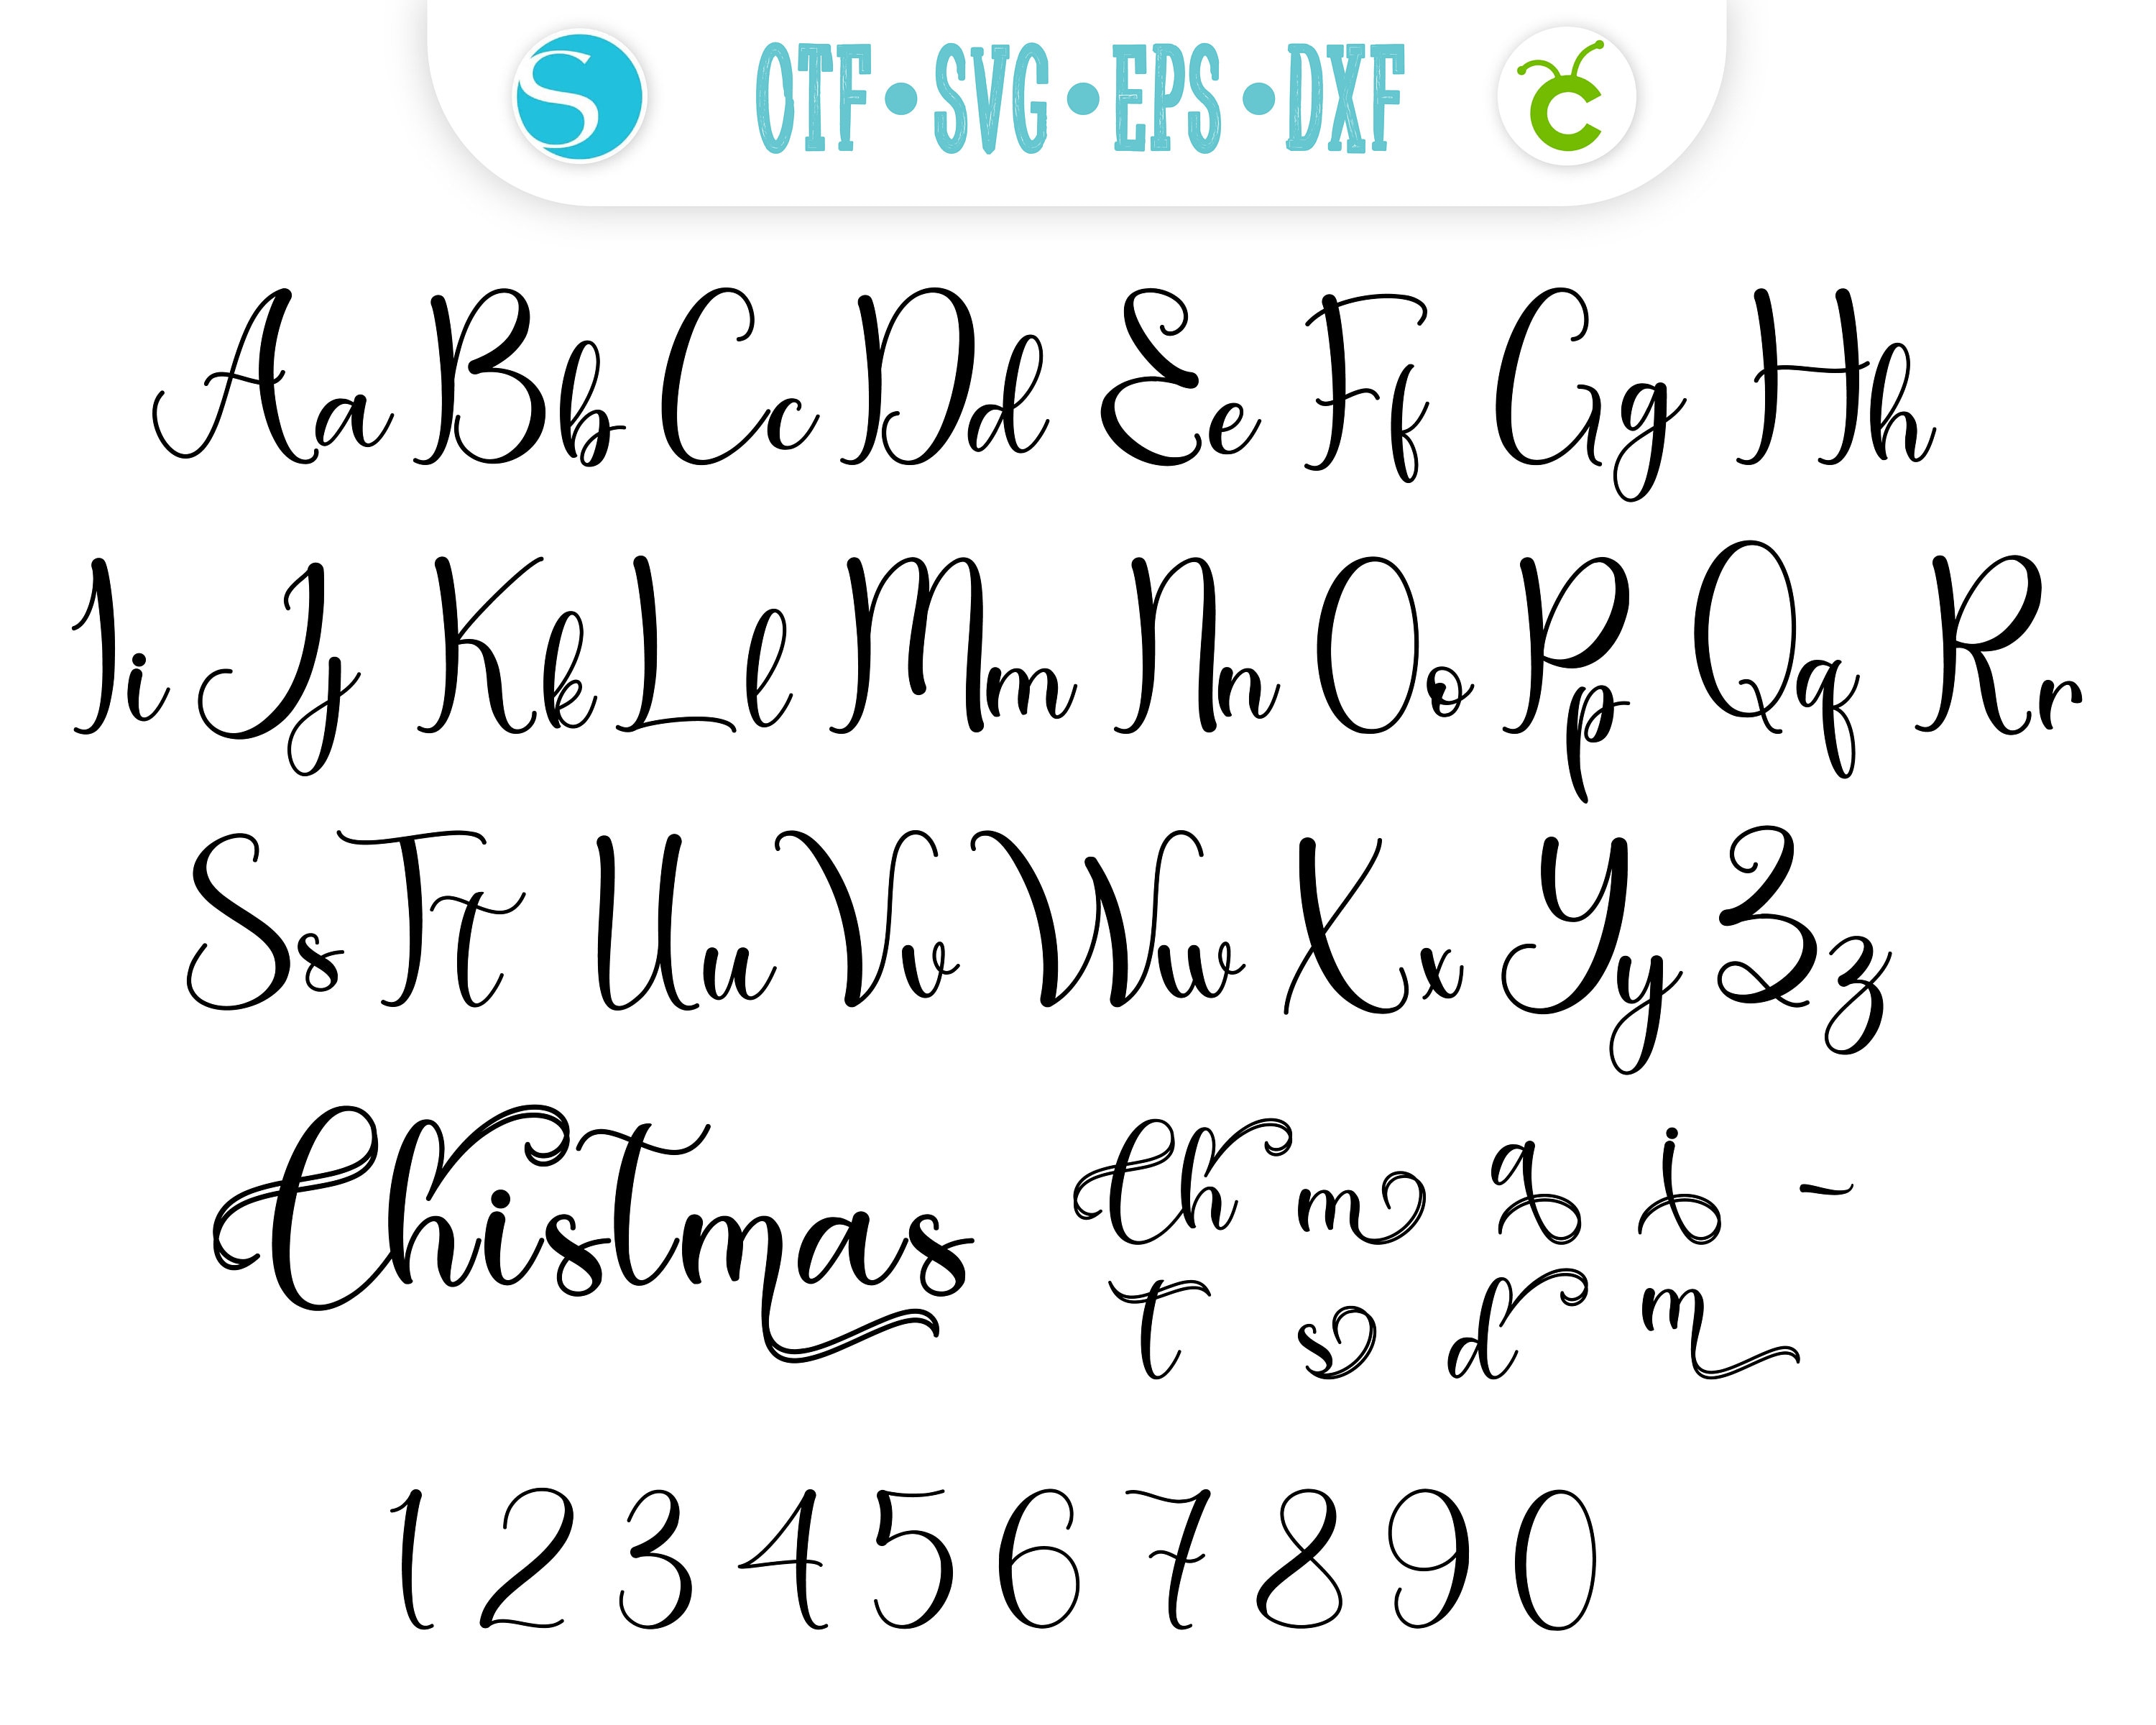 S OTF • SVG • EPS • DXF C
Aa Bb Cc Dd Ee Ff Gg Hh
Ii Jj Kk Ll Mm Nn Oo Pp Qq Rr
Ss Tt Uu Vv Ww Xx Yy Zz
Chistmas
Ch m g i -
T s d m
1 2 3 4 5 6 7 8 9 0